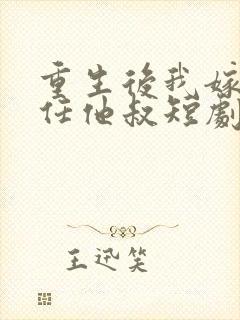 重生後我嫁
任他叔短劇
王迅笑